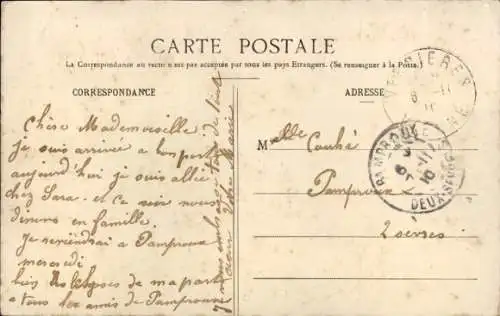 CARTE POSTALE
La Correspondance au recto n'est pas acceptée par tous les pays Etrangers. (Se renseigner à la Poste)
CORRESPONDANCE
ADRESSE
Chère Mademoiselle
je suis arrivée a bon port
aujourd'hui je suis allée
chez Sara. et ce soir nous
dinons en famille
Je reviendrai a Pamproux
mercredi
bien des choses de ma part
a tous les amis de Pamproux
je vous embrasse
votre Marie
Melle Couhé
Pamproux
2 sèvres
PAMPROUX
DEUX-SEVRES